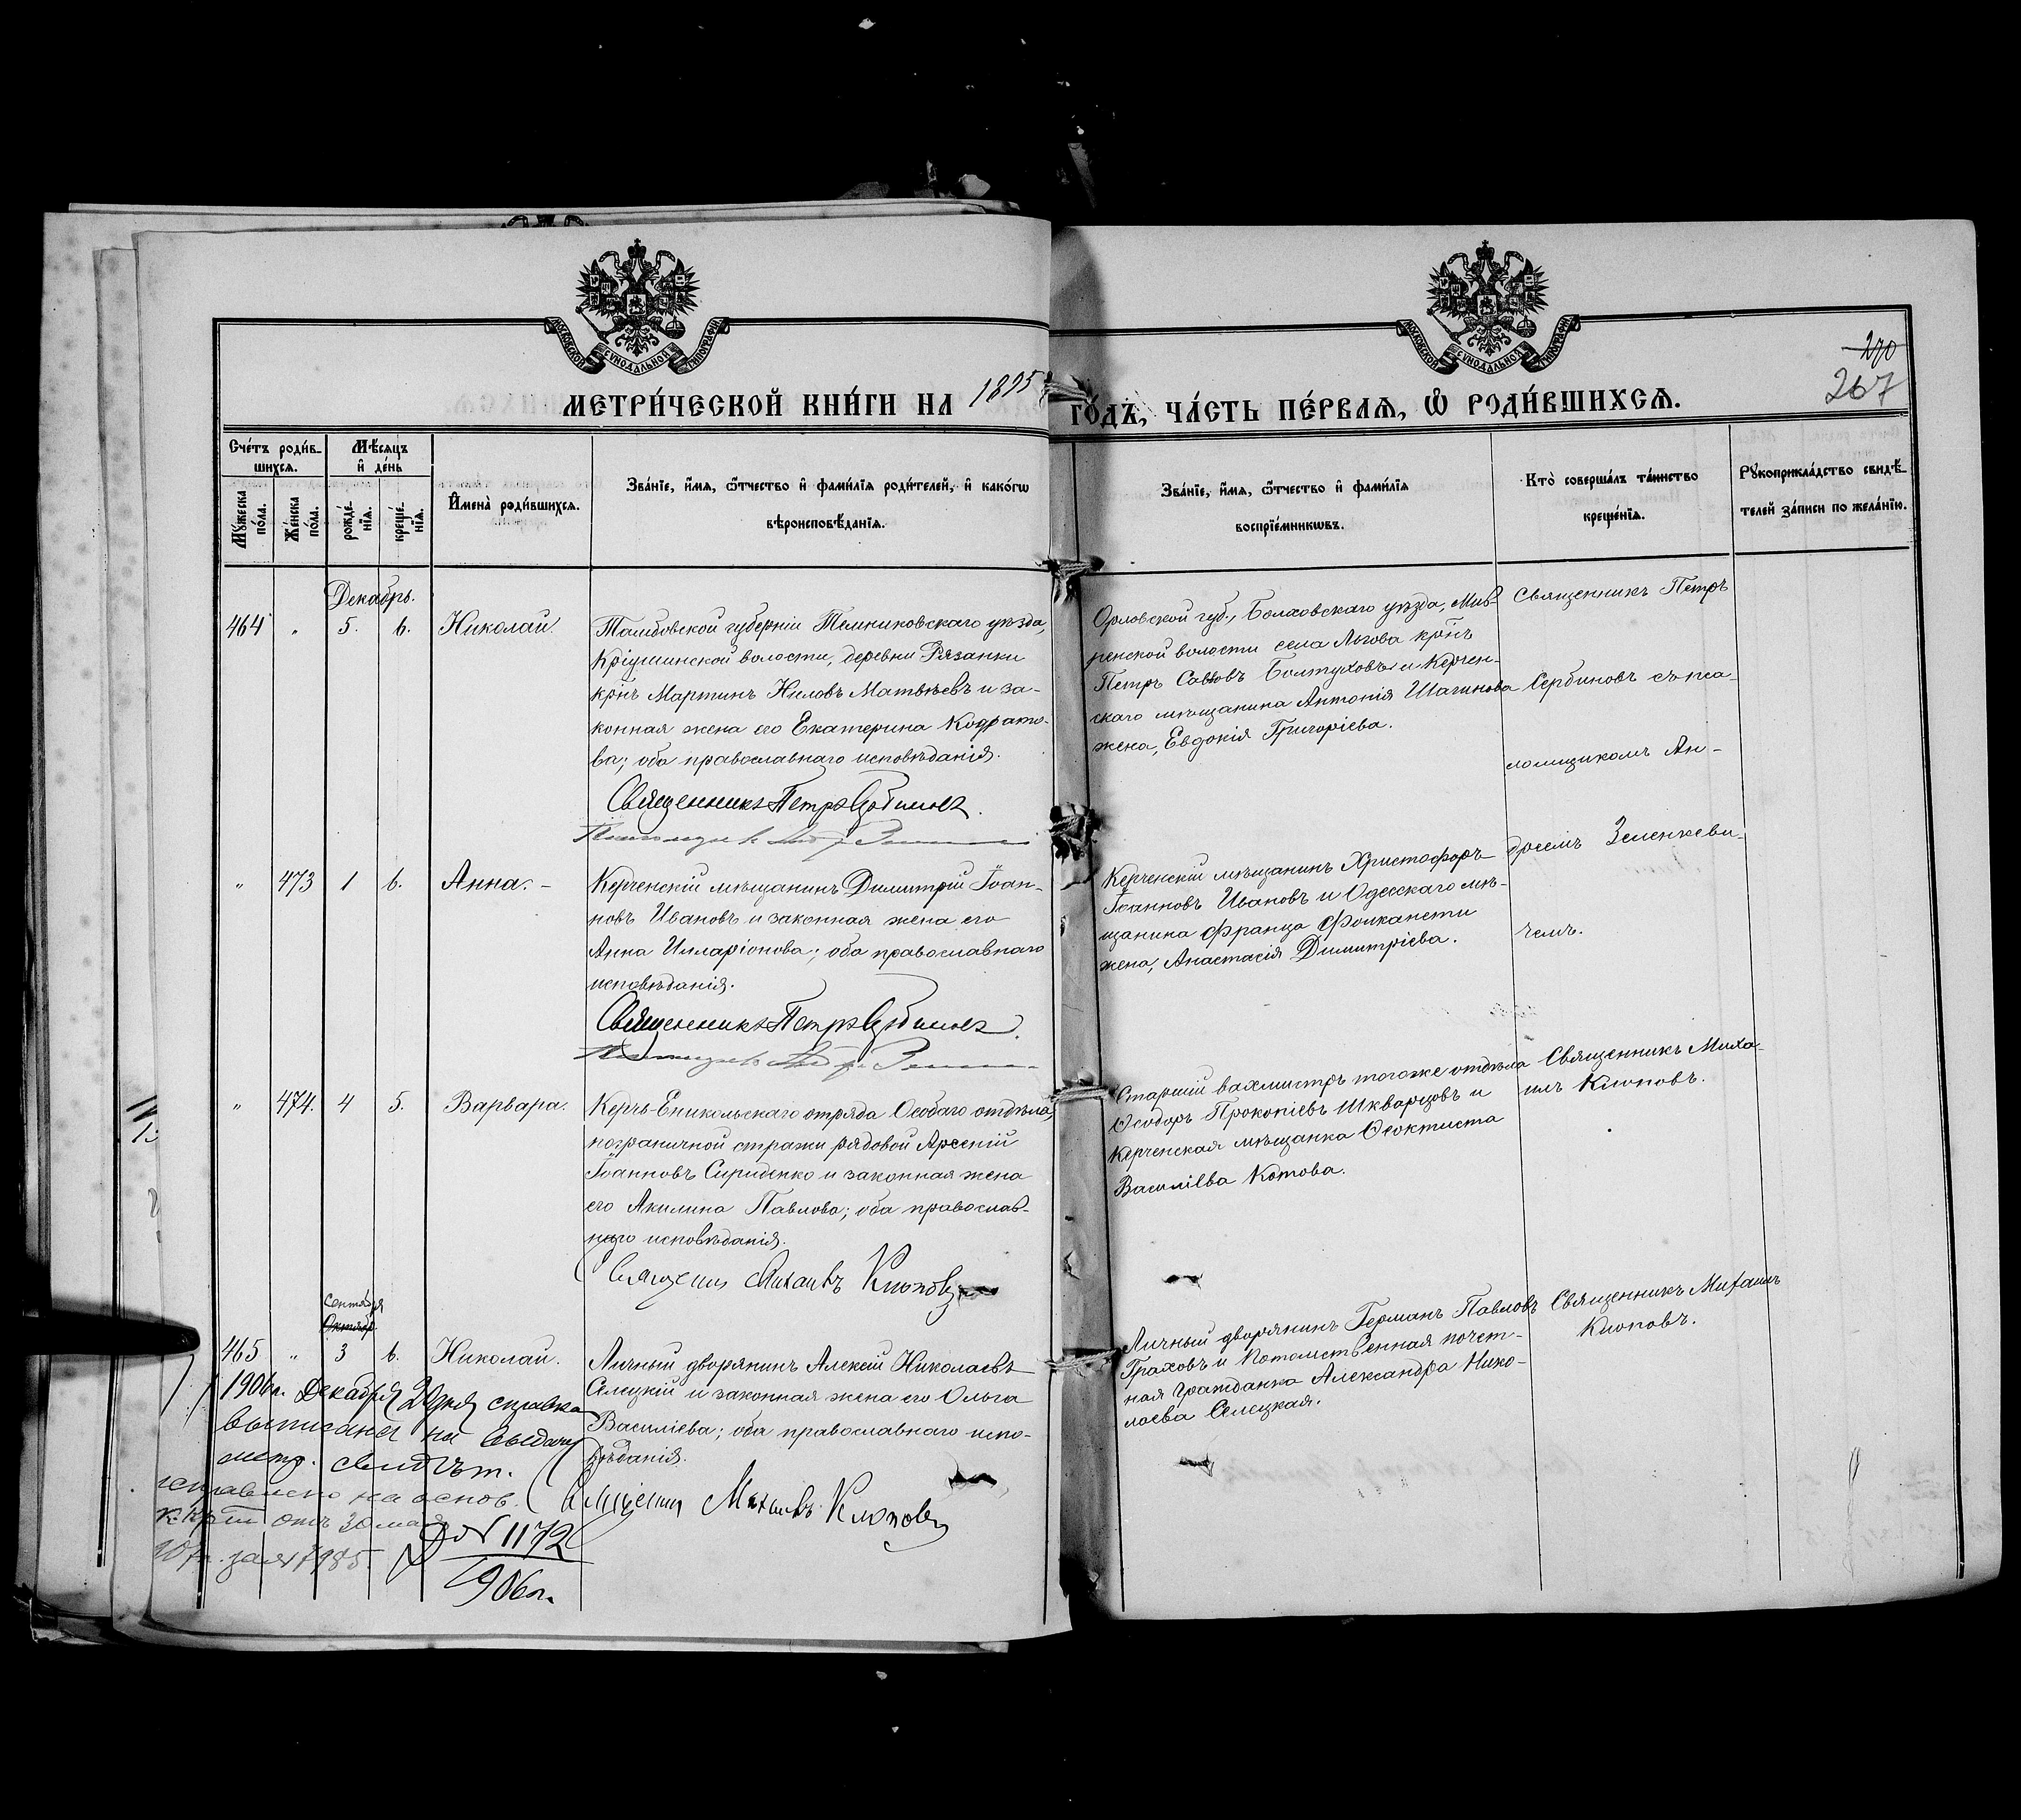 МОСКОВСКОЙ СѴНОДАЛЬНОЙ ТИПОГРАФІИ
МОСКОВСКОЙ СѴНОДАЛЬНОЙ ТИПОГРАФІИ
270
267
МЕТРИ́ЧЕСКОЙ КНИ́ГИ НА 1895 ГО́ДЪ, ЧА́СТЬ ПЕ́РВАѦ, Ѡ҆ РОДИ́ВШИХСѦ.
Сче́тъ роди́в-
шихсѧ.
Мѣ́сѧцъ
и҆ де́нь
Мꙋ́жеска
по́ла.
Же́нска
по́ла.
рожде́-
нїѧ.
креще́-
нїѧ.
И҆мена̀ роди́вшихсѧ.
Зва́нїе, и҆́мѧ, ѻ҆́тчество и҆ фами́лїѧ роди́телей, и҆ како́гѡ
вѣроисповѣ́данїѧ.
Зва́нїе, и҆́мѧ, ѻ҆́тчество и҆ фами́лїѧ
воспрїе́мникѡвъ.
Кто̀ соверша́лъ та́инство
креще́нїѧ.
Рꙋкоприкла́дство свидѣ́-
телей за́писи по жела́нїю.
Декабрь.
464 „ 5. 6. Николай.
Тамбовской губерніи Темниковскаго уѣзда,
Кріушинской волости, деревни Рязанки
крн҃ъ Мартинъ Ниловъ Матвѣевъ и за-
конная жена его Екатерина Кодрато-
ва; оба православнаго исповѣданія.
Священникъ Петръ Сербиновъ.
Орловской губ., Болховскаго уѣзда,
ренской волости села Льгова крн҃ъ
Петръ Саввовъ Болтуховъ и Керчен-
скаго мѣщанина Антонія Шагинова
жена, Евдокія Григоріева.
Священникъ Петръ
Сербиновъ съ пса-
ломщикомъ Ан-
дреемъ Зеленкеви-
чемъ.
„ 473 1 6. Анна. -
Керченскій мѣщанинъ Димитрій Іоан-
новъ Ивановъ и законная жена его
Анна Илларіонова; оба православнаго
исповѣданія.
Священникъ Петръ Сербиновъ.
Керченскій мѣщанинъ Христофоръ
Іоанновъ Ивановъ и Одесскаго мѣ-
щанина Франца
жена, Анастасія Димитріева.
„ 474. 4 5. Варвара.
Керчь-Еникольскаго отряда Особаго отдѣла
пограничной стражи рядовой Арсеній
Іоанновъ Сириденко и законная жена
его Акилина Павлова; оба православ-
наго исповѣданія.
Священникъ Михаилъ Клоповъ
Старшій вахмистръ тогоже отдѣла
Ѳеодоръ Прокопіевъ Шкварцовъ и
Керченская мѣщанка Ѳеоктиста
Василіева Котова.
Священникъ Миха-
илъ Клоповъ.
Сентября
Октябр.
465 „ 3 6. Николай.
Личный дворянинъ Алексій Николаевъ
Селецкій и законная жена его Ольга
Василіева; оба православнаго испо-
вѣданія.
Священникъ Михаилъ Клоповъ
Личный дворянинъ Германъ Павловъ
Граховъ и Потомственная почет-
ная гражданка Александра Нико-
лаева Селецкая.
Священникъ Михаилъ
Клоповъ.
1906г. Декабря 2 дня справка
выписана на выдачу
метр. свидѣт.
на основ.
отъ 30 мая
за № 7985.
До № 1172
1906г.